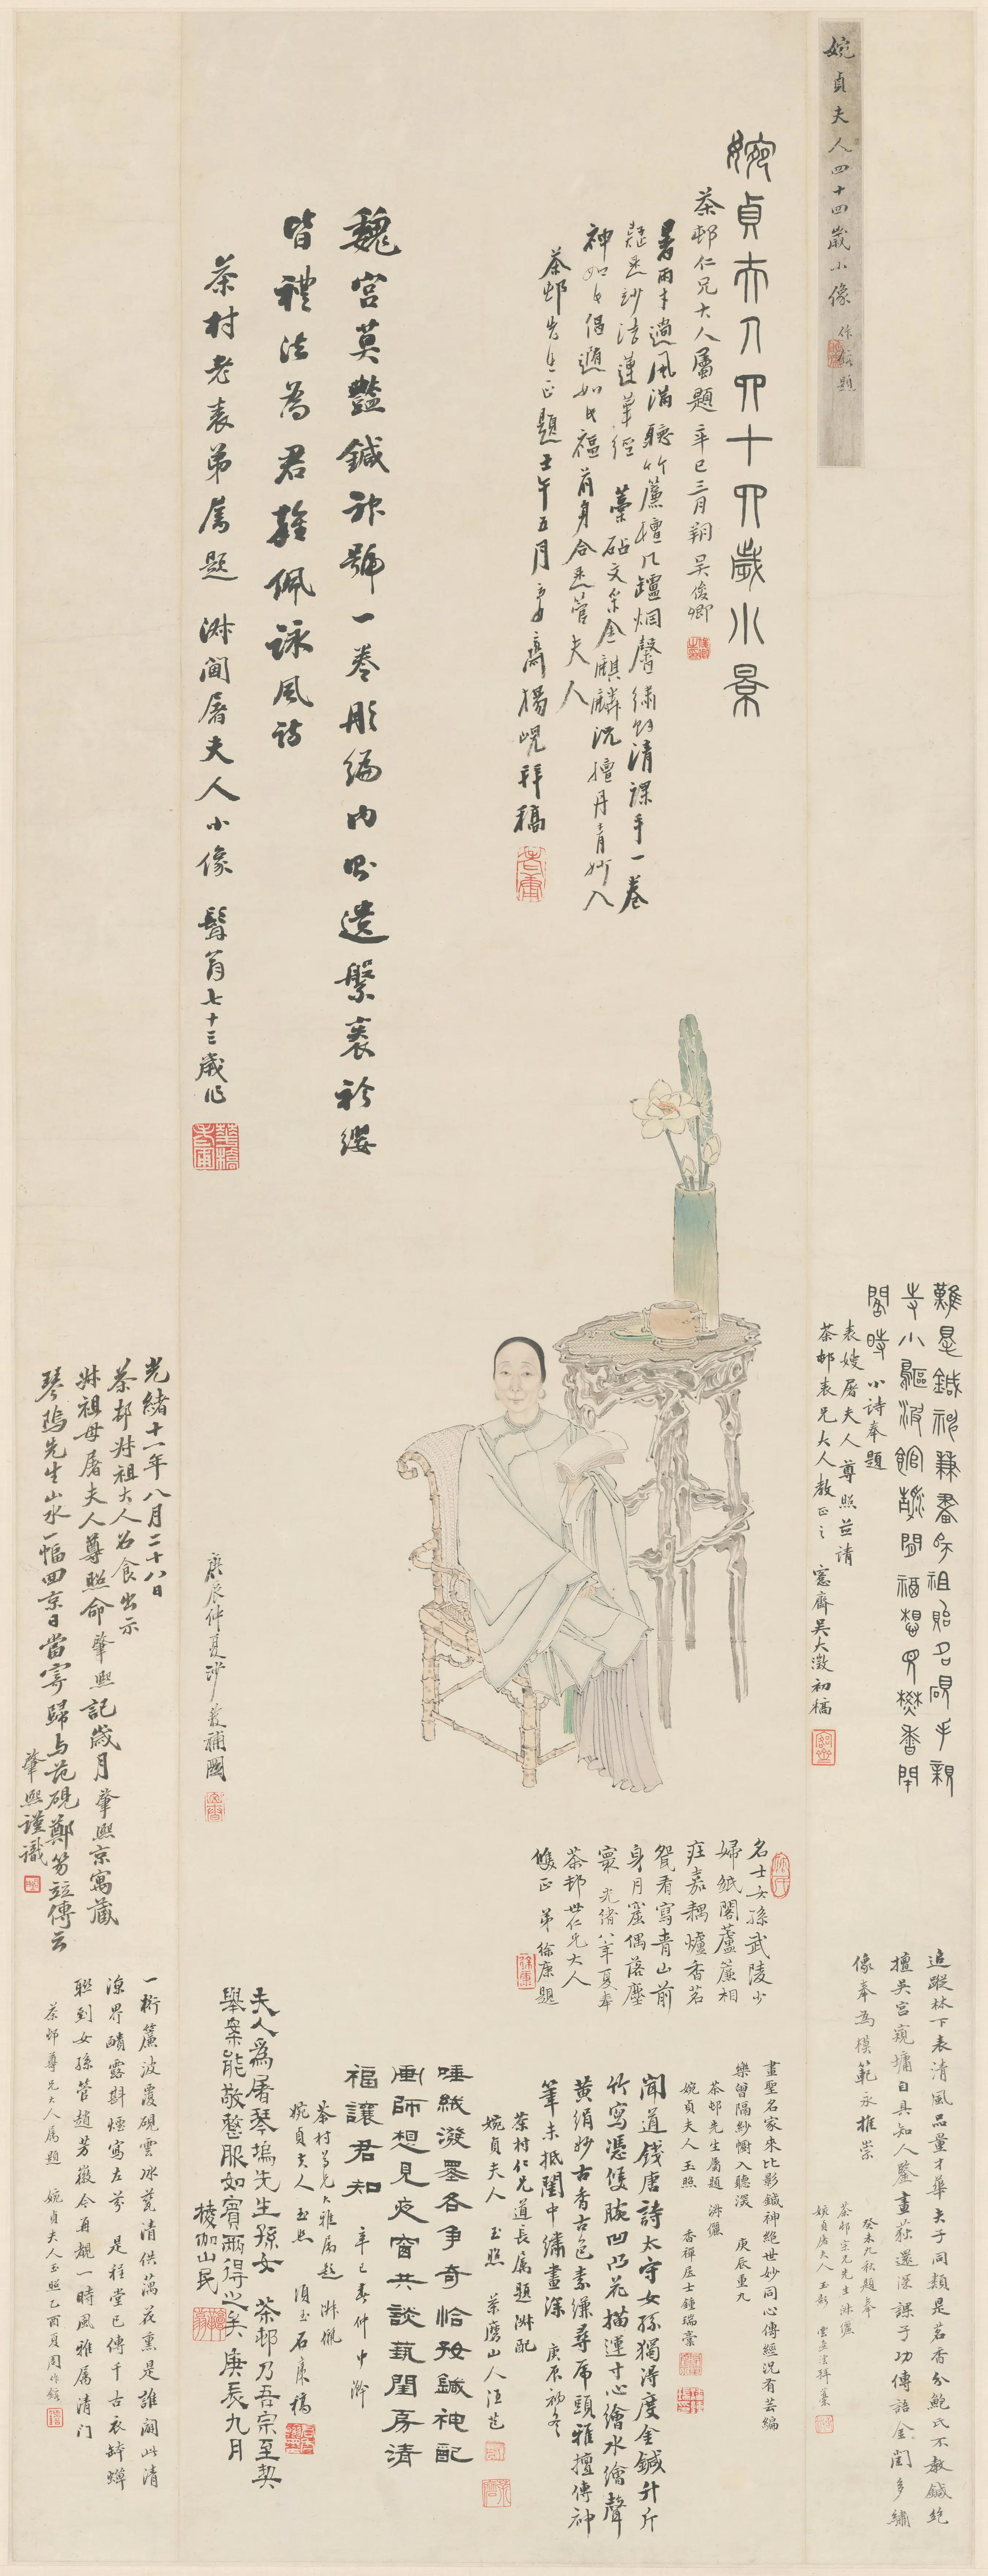 婉貞夫人四十四歲小像
作鎔題
婉貞夫人四十四歲小景
茶邨仁兄大人屬題 辛巳三月朔 吴俊卿
暑雨才過風滿聽竹簾檀几罏烟馨繡餘清課手一卷
疑是妙法蓮華經 藁砧文采金麒麟況擅丹青妙入
神如此偶適如此福前身合是管夫人
茶邨先生正題 壬午五月 楊峴拜稿
魏宮莫豔鍼神號一卷彤編內則遺縏袠衿纓
皆禮法為君雜佩詠風詩
茶村老表弟屬題 淋閫屠夫人小像 髯翁七十三歲作
難是鍼神兼畫師祖貽名硯手親
小詩奉題
表嫂屠夫人尊照並請
茶邨表兄大人教正之 愙齋吴大澂初稿
庚辰仲夏沙馥補圖
光緒十一年八月二十八日
茶邨叔祖大人召食出示
叔祖母屠夫人尊照命肇熙記歲月肇熙京寓藏
琴隖先生山水一幅回京日當寄歸与范硯鄭笏竝傳云
肇熙謹識
名士女孫武陵少
婦紙閣蘆簾相
莊嘉耦爐香茗
椀看寫青山前
身月窟偶落塵
寰 光緒八年夏奉
茶邨世仁兄大人
雙正 弟徐康題
追蹤林下表清風品量才華夫子同類是茗香分鮑氏不教鍼絕
擅吴宮窺墉自具知人鑒畫荻還深課子功傳語金閨多繡
像奉為模範永推崇
癸未九秋題奉
茶邨宗兄先生淋儷
婉貞屠夫人玉影
畫聖名家朱比影鍼神絕世妙同心傳經況有芸編
樂曾隔紗幮入聽深
茶邨先生屬題 淋儷 庚辰重九
婉貞夫人玉照 香禪居士鍾瑞藁
聞道錢唐詩太守女孫獨淂度金鍼升斤
竹寫憑雙腕凹凸花描運寸心繪水繪聲
黃絹妙古香古色素縑尋虎頭雅擅傳神
筆未抵閨中繡畫深 庚辰初冬
茶村仁兄道長屬題淋配
婉貞夫人玉照 茶磨山人汪芑
唾絨潑墨各爭奇恰好鍼神配
畫師想見夜窗共談執閨房清
福讓君知 辛巳春仲中澣
茶村尊兄大雅屬題淋儷
婉貞夫人玉照 頑主石康稿
夫人爲屠琴塢先生孫女 茶邨乃吾宗至契
舉案能敬整服如賓兩得之矣 庚辰九月
棱伽山民
一桁簾波覆硯雲冰甆清供藕花熏是誰闢此清
涼界醮露斟煙寫左芬 是程堂已傳千古衣缽蟬
聯到女孫管趙芳徽今再覩一時風雅屬清門
茶邨尊兄大人屬題 婉貞夫人玉照乙酉夏周作鎔